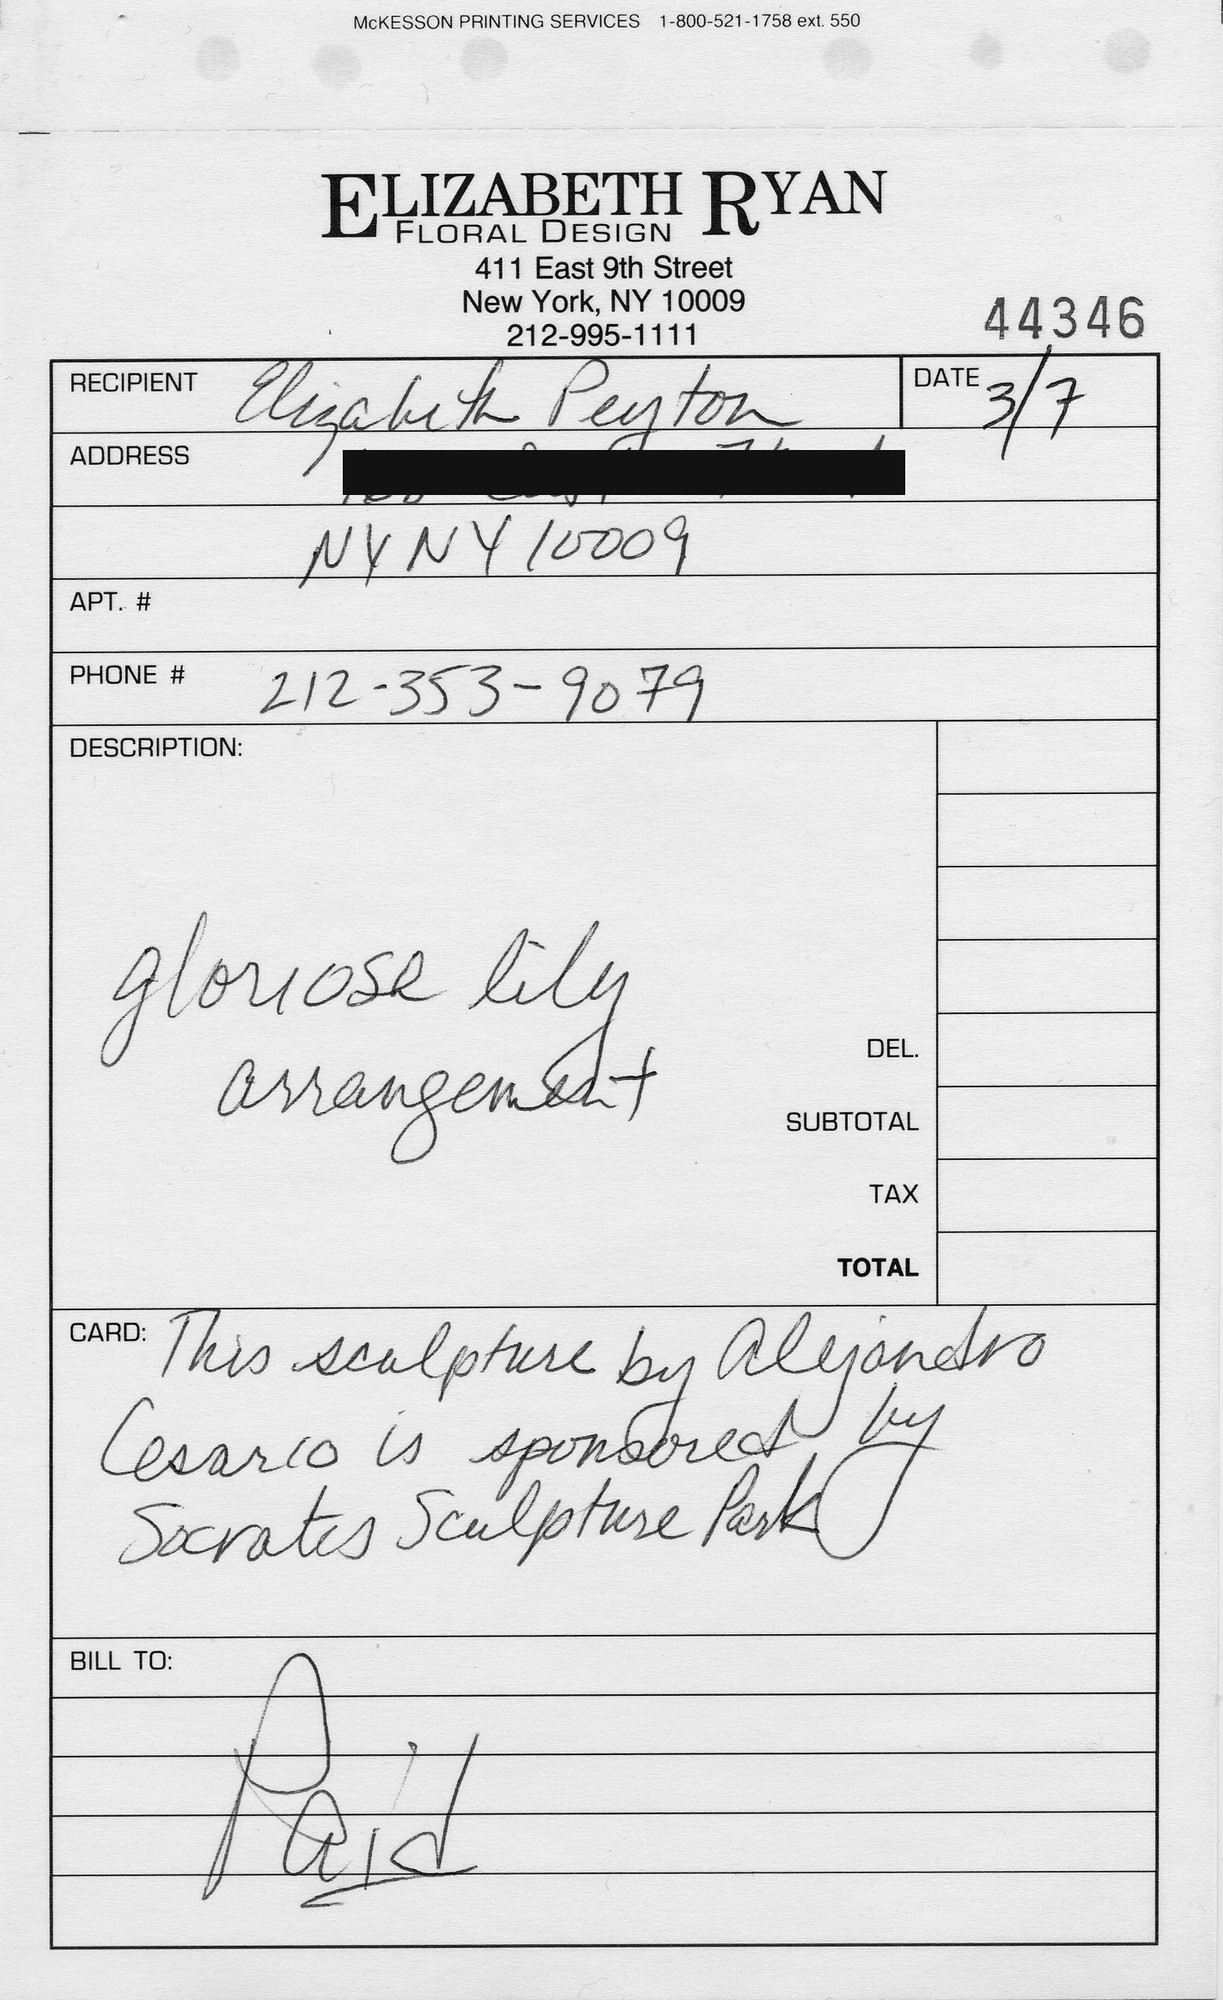 McKESSON PRINTING SERVICES 1-800-521-1758 ext. 550
ELIZABETH RYAN
FLORAL DESIGN
411 East 9th Street
New York, NY 10009
212-995-1111
44346
RECIPIENT Elizabeth Peyton DATE 3/7
ADDRESS
NY NY 10009
APT. #
PHONE # 212-353-9079
DESCRIPTION:
gloriosa lily
arrangement
DEL.
SUBTOTAL
TAX
TOTAL
CARD: This sculpture by Alejandro
Cesarco is sponsored by
Socrates Sculpture Park
BILL TO:
Paid